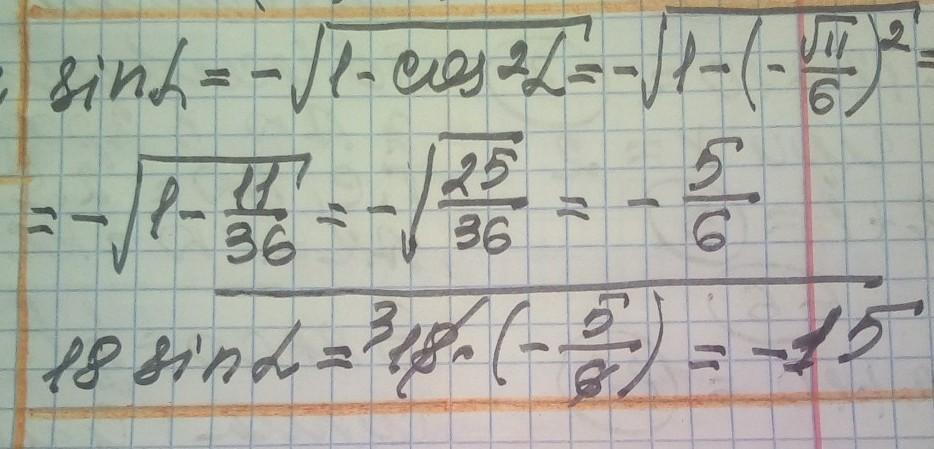 sin α = -√(1 - cos²α) = -√(1 - (-√11/6)²) =
= -√(1 - 11/36) = -√(25/36) = - 5/6
18 sin α = ³18 · (- 5/6) = -15